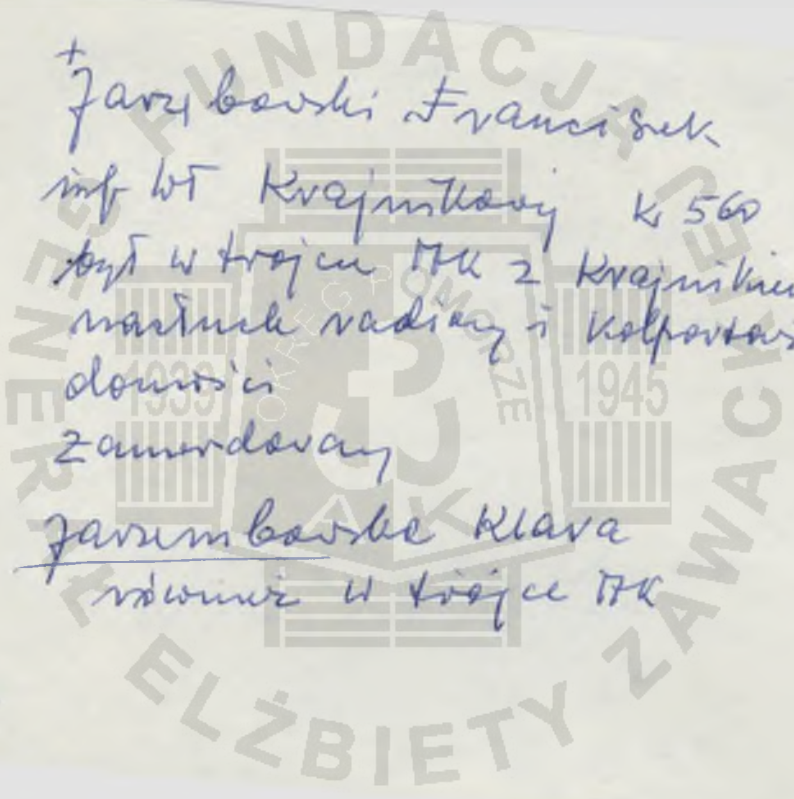 +
Jarzębowski Franciszek
inf Wł Krajnikowy K 560
był w trójce AK z Krajnikiem
nasłuch radiowy i kolportaż
domości
zamordowany
Jarzembowska Klara
również w trójce AK
FUNDACJA GENERAŁ ELŻBIETY ZAWACKIEJ
OKRĘG POMORZE
1939 1945
AK